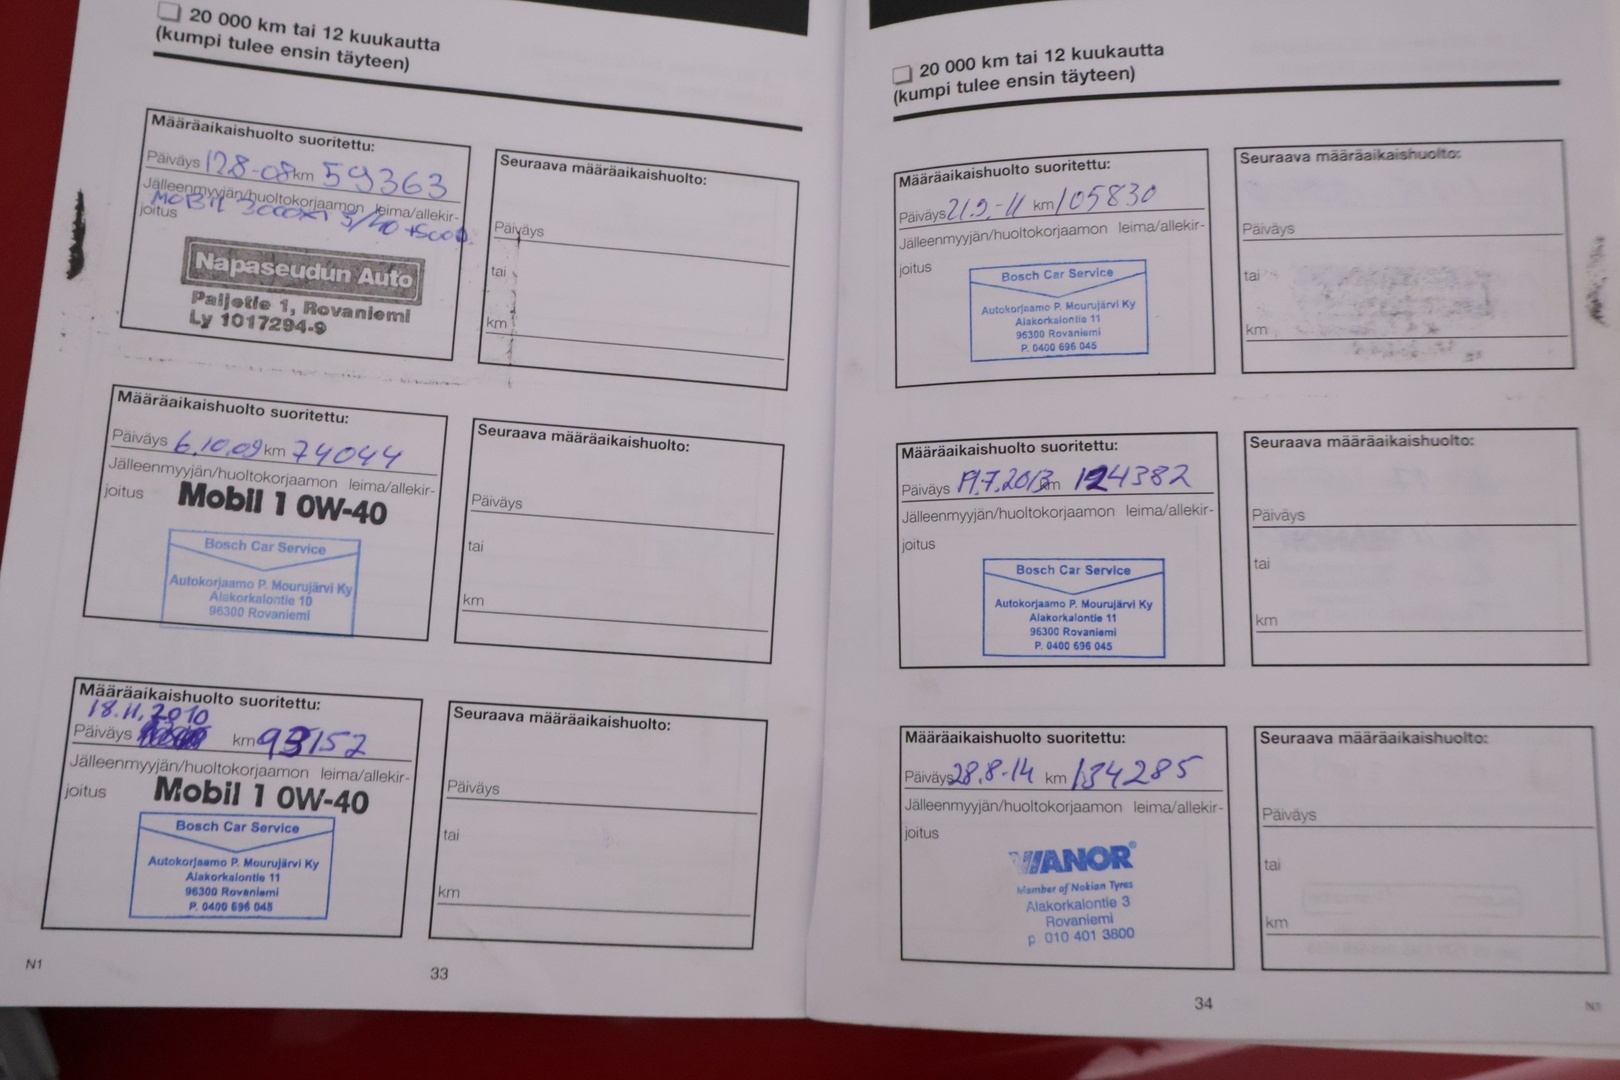 20 000 km tai 12 kuukautta
(kumpi tulee ensin täyteen)
Määräaikaishuolto suoritettu:
Päiväys 12.8-08 km 59363
Jälleenmyyjän/huoltokorjaamon leima/allekir-
joitus
MOBIL 3000X1 5/40
Napaseudun Auto
Paljetie 1, Rovaniemi
Ly 1017294-9
Seuraava määräaikaishuolto:
Päiväys
tai
km
Määräaikaishuolto suoritettu:
Päiväys 6.10.09 km 74044
Jälleenmyyjän/huoltokorjaamon leima/allekir-
joitus
Mobil 1 0W-40
Bosch Car Service
Autokorjaamo P. Mourujärvi Ky
Alakorkalontie 10
96300 Rovaniemi
Seuraava määräaikaishuolto:
Päiväys
tai
km
Määräaikaishuolto suoritettu:
18.11.2010
Päiväys km 93152
Jälleenmyyjän/huoltokorjaamon leima/allekir-
joitus
Mobil 1 0W-40
Bosch Car Service
Autokorjaamo P. Mourujärvi Ky
Alakorkalontie 11
96300 Rovaniemi
P. 0400 696 045
Seuraava määräaikaishuolto:
Päiväys
tai
km
N1
33
20 000 km tai 12 kuukautta
(kumpi tulee ensin täyteen)
Määräaikaishuolto suoritettu:
Päiväys 21.9.-11 km 105830
Jälleenmyyjän/huoltokorjaamon leima/allekir-
joitus
Bosch Car Service
Autokorjaamo P. Mourujärvi Ky
Alakorkalontie 11
96300 Rovaniemi
P. 0400 696 045
Seuraava määräaikaishuolto:
Päiväys
tai
km
Määräaikaishuolto suoritettu:
Päiväys 19.7.2013 km 124382
Jälleenmyyjän/huoltokorjaamon leima/allekir-
joitus
Bosch Car Service
Autokorjaamo P. Mourujärvi Ky
Alakorkalontie 11
96300 Rovaniemi
P. 0400 696 045
Seuraava määräaikaishuolto:
Päiväys
tai
km
Määräaikaishuolto suoritettu:
Päiväys 28.8-14 km 134285
Jälleenmyyjän/huoltokorjaamon leima/allekir-
joitus
VIANOR®
Member of Nokian Tyres
Alakorkalontie 3
Rovaniemi
p 010 401 3800
Seuraava määräaikaishuolto:
Päiväys
tai
km
34